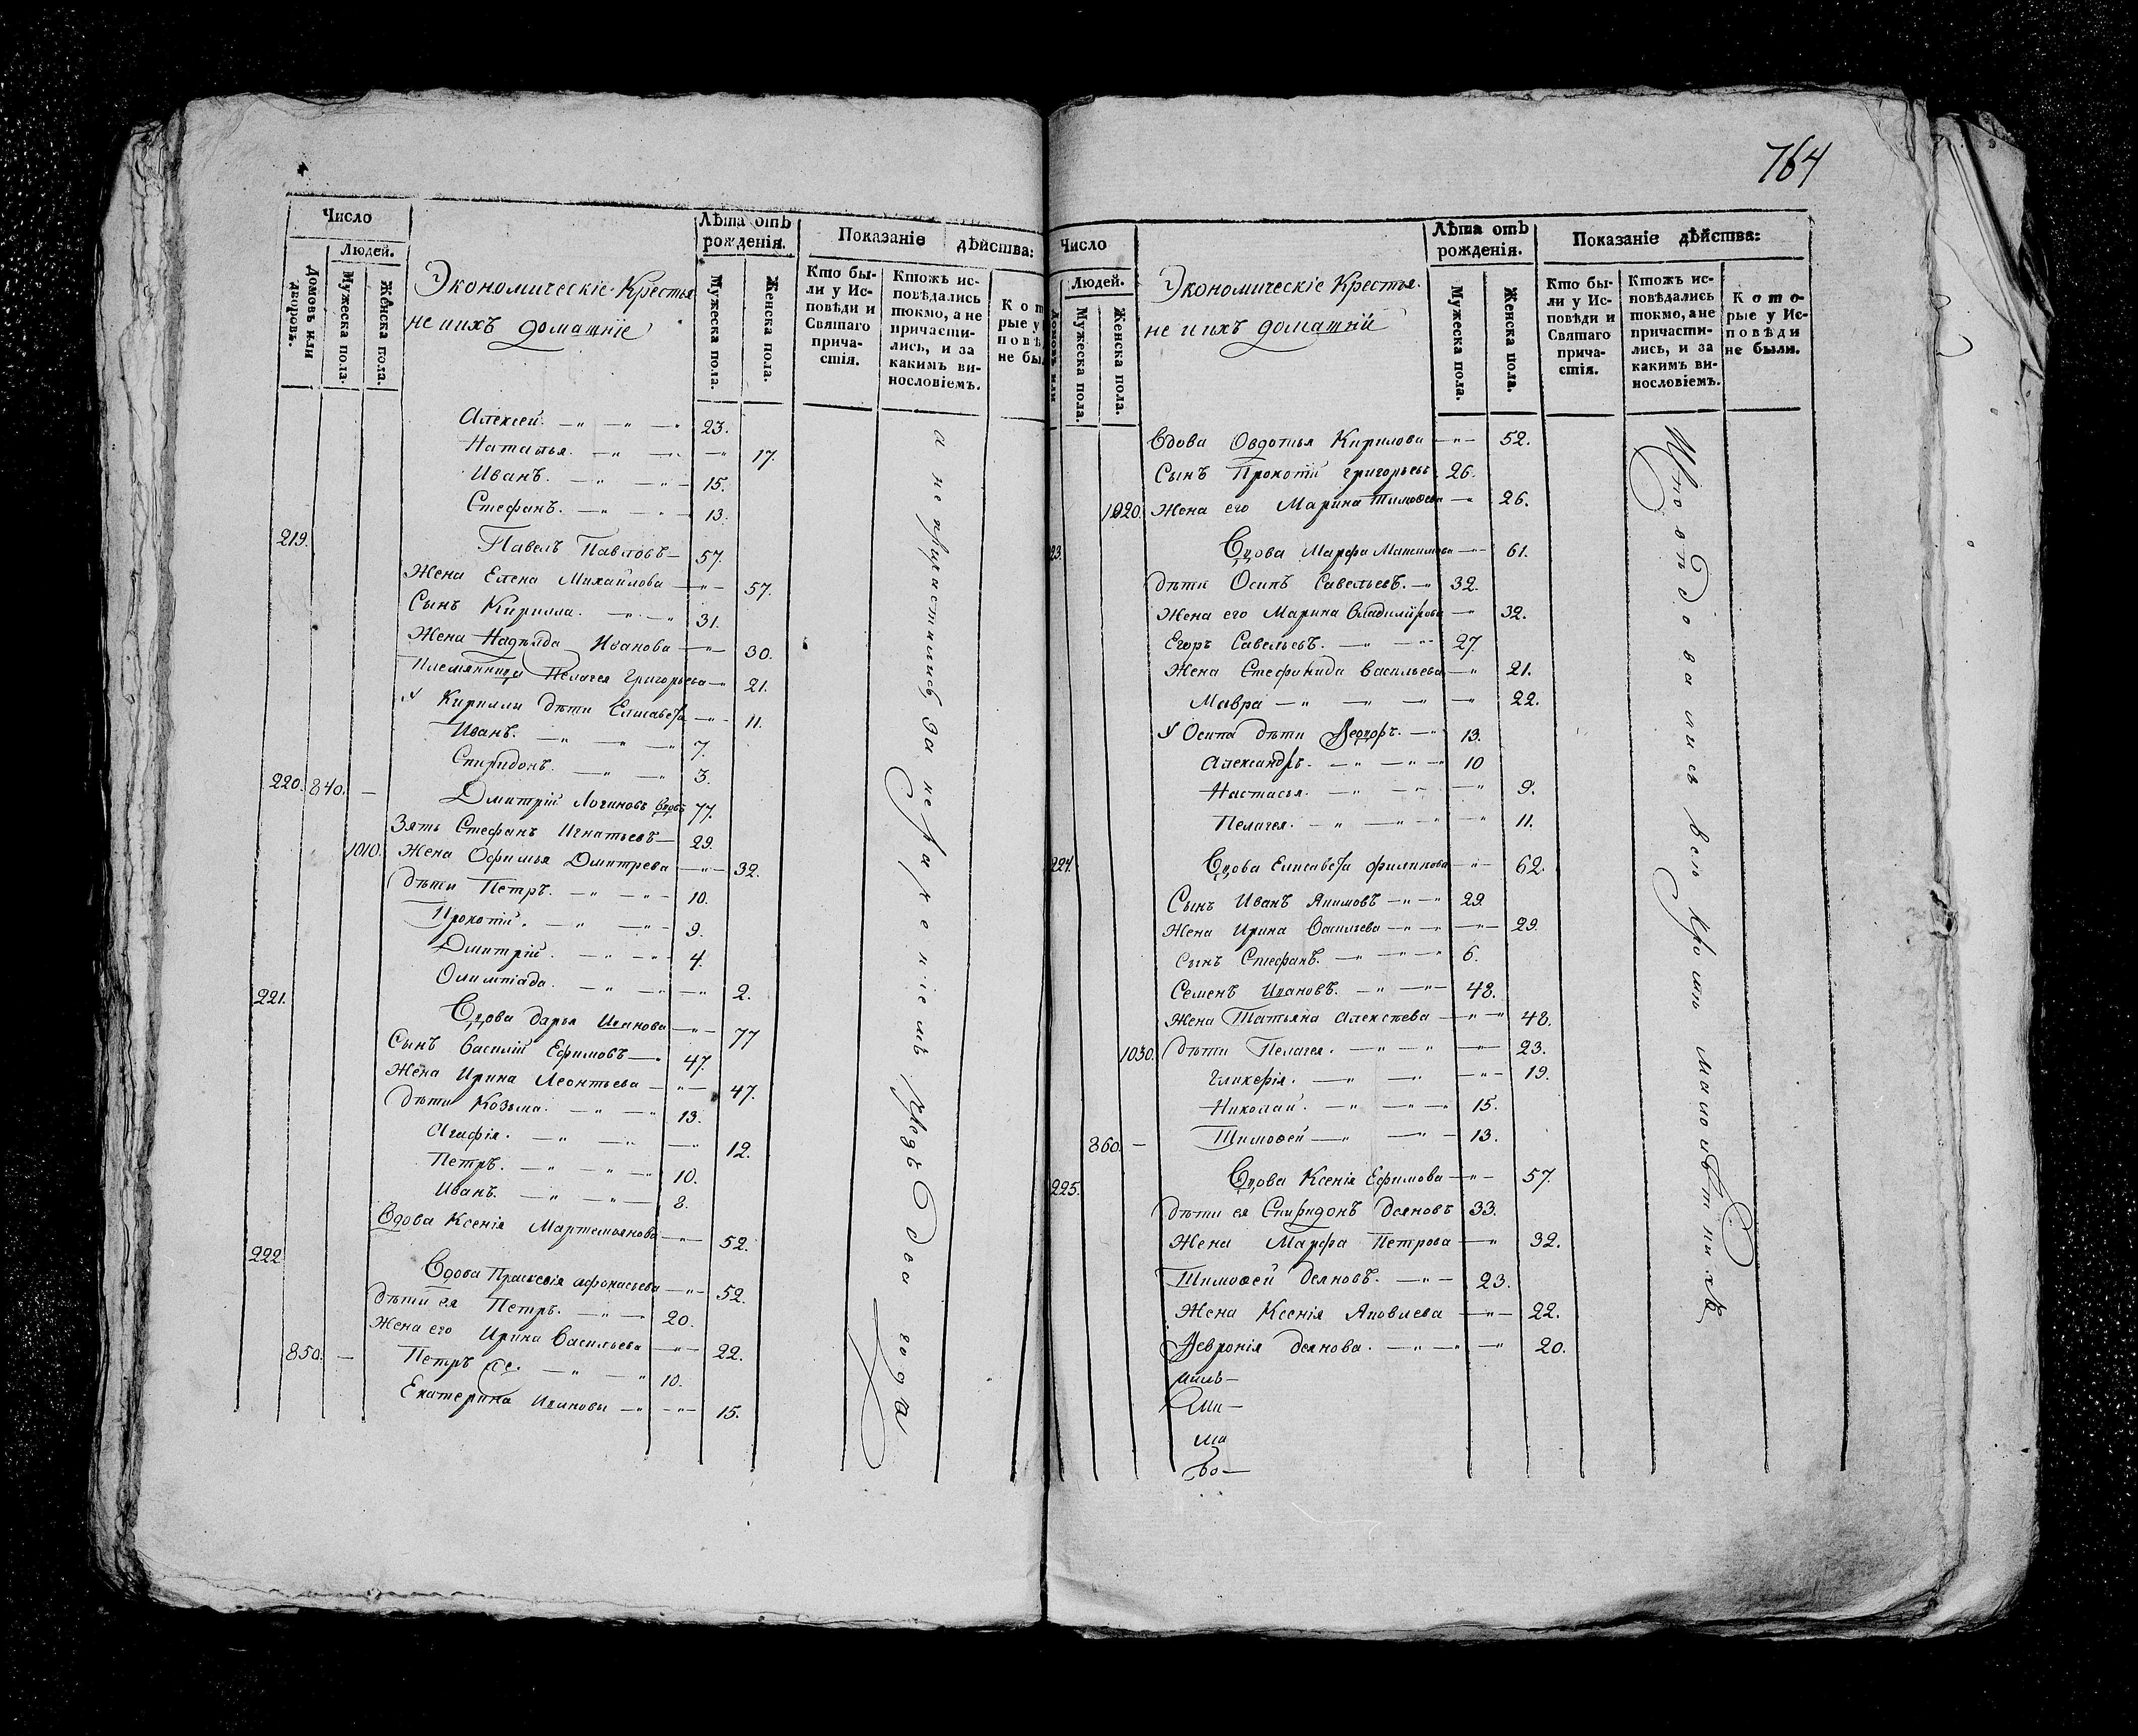 764
Число
Людей.
Домовъ или дворовъ.
Мужеска пола.
Женска пола.
Экономическіе Крестья
не и ихъ домашніе
Лѣта отъ рожденія.
Мужеска пола.
Женска пола.
Показаніе дѣйства:
Кто бы-
ли у Ис-
повѣди и
Святаго
прича-
стія.
Ктожъ ис-
повѣдались
токмо, а не
причасти-
лись, и за
какимъ ви-
нословіемъ.
Кот
рые у
повѣ
не бы
Алексей. 23.
Наталья. 17.
Иванъ. 15.
Стефанъ. 13.
219. Павелъ Павловъ 57.
Жена Елена Михайлова 57.
Сынъ Кирилла. 31.
Жена Надѣжда Иванова 30.
Племянница Пелагея Григорьева 21.
У Кириллы дѣти Елисавеѳа 11.
Иванъ. 7.
Спиридонъ. 3.
220. 840. Дмитрій Логиновъ вдовъ 77.
Зять Стефанъ Игнатьевъ 29.
1010. Жена Офимья Дмитрева 32.
Дѣти Петръ. 10.
Прокопій. 9.
Дмитрій. 4.
Олимпіада. 2.
221. Вдова Дарья Иванова 77
Сынъ Василій Ефимовъ 47.
Жена Ирина Леонтьева 47.
Дѣти Козьма. 13.
Агафія. 12.
Петръ. 10.
Иванъ. 8.
Вдова Ксенія Мартемьянова 52.
222. Вдова Праскевія Афонасьева 52.
Дѣти ея Петръ. 20.
Жена его Ирина Васильева 22.
850. Петръ 10.
Екатерина Ивановы 15.
а не приластились за нераченіемъ
года
Число
Людей.
Мужеска пола.
Женска пола.
Экономическіе Крестья
не и ихъ домашніи
Лѣта отъ рожденія.
Мужеска пола.
Женска пола.
Показаніе дѣйства:
Кто бы-
ли у Ис-
повѣди и
Святаго
прича-
стія.
Ктожъ ис-
повѣдались
токмо, а не
причасти-
лись, и за
какимъ ви-
нословіемъ.
Кото-
рые у Ис-
повѣди
не были.
Вдова Овдотья Кирилова 52.
Сынъ Прокопій Григорьевъ 26.
1020. Жена его Марина Тимоѳева 26.
23. Вдова Марфа Максимова 61.
Дѣти Осипъ Савельевъ. 32.
Жена его Марина Владимірова 32.
Егоръ Савельевъ. 27
Жена Стефанида Васильева 21.
Мавра 22.
У Осипа дѣти Ѳедоръ. 13.
Александръ. 10
Настасья. 9.
Пелагея. 11.
224. Вдова Елисавеѳа Филипова 62.
Сынъ Иванъ Якимовъ 29.
Жена Ирина Васильева 29.
Сынъ Стефанъ. 6.
Семенъ Ивановъ. 48.
Жена Татьяна Алексѣева 48.
1030. Дѣти Пелагея. 23.
Гликерія. 19.
Николай. 15.
860. Тимоѳей 13.
225. Вдова Ксенія Ефимова 57.
Дѣти ея Спиридонъ Деяновъ 33.
Жена Марфа Петрова 32.
Тимоѳей Деяновъ. 23.
Жена Ксенія Яковлева 22.
Ѳевронія Деянова. 20.
Исповѣдовались всѣ кромѣ малолѣтнихъ